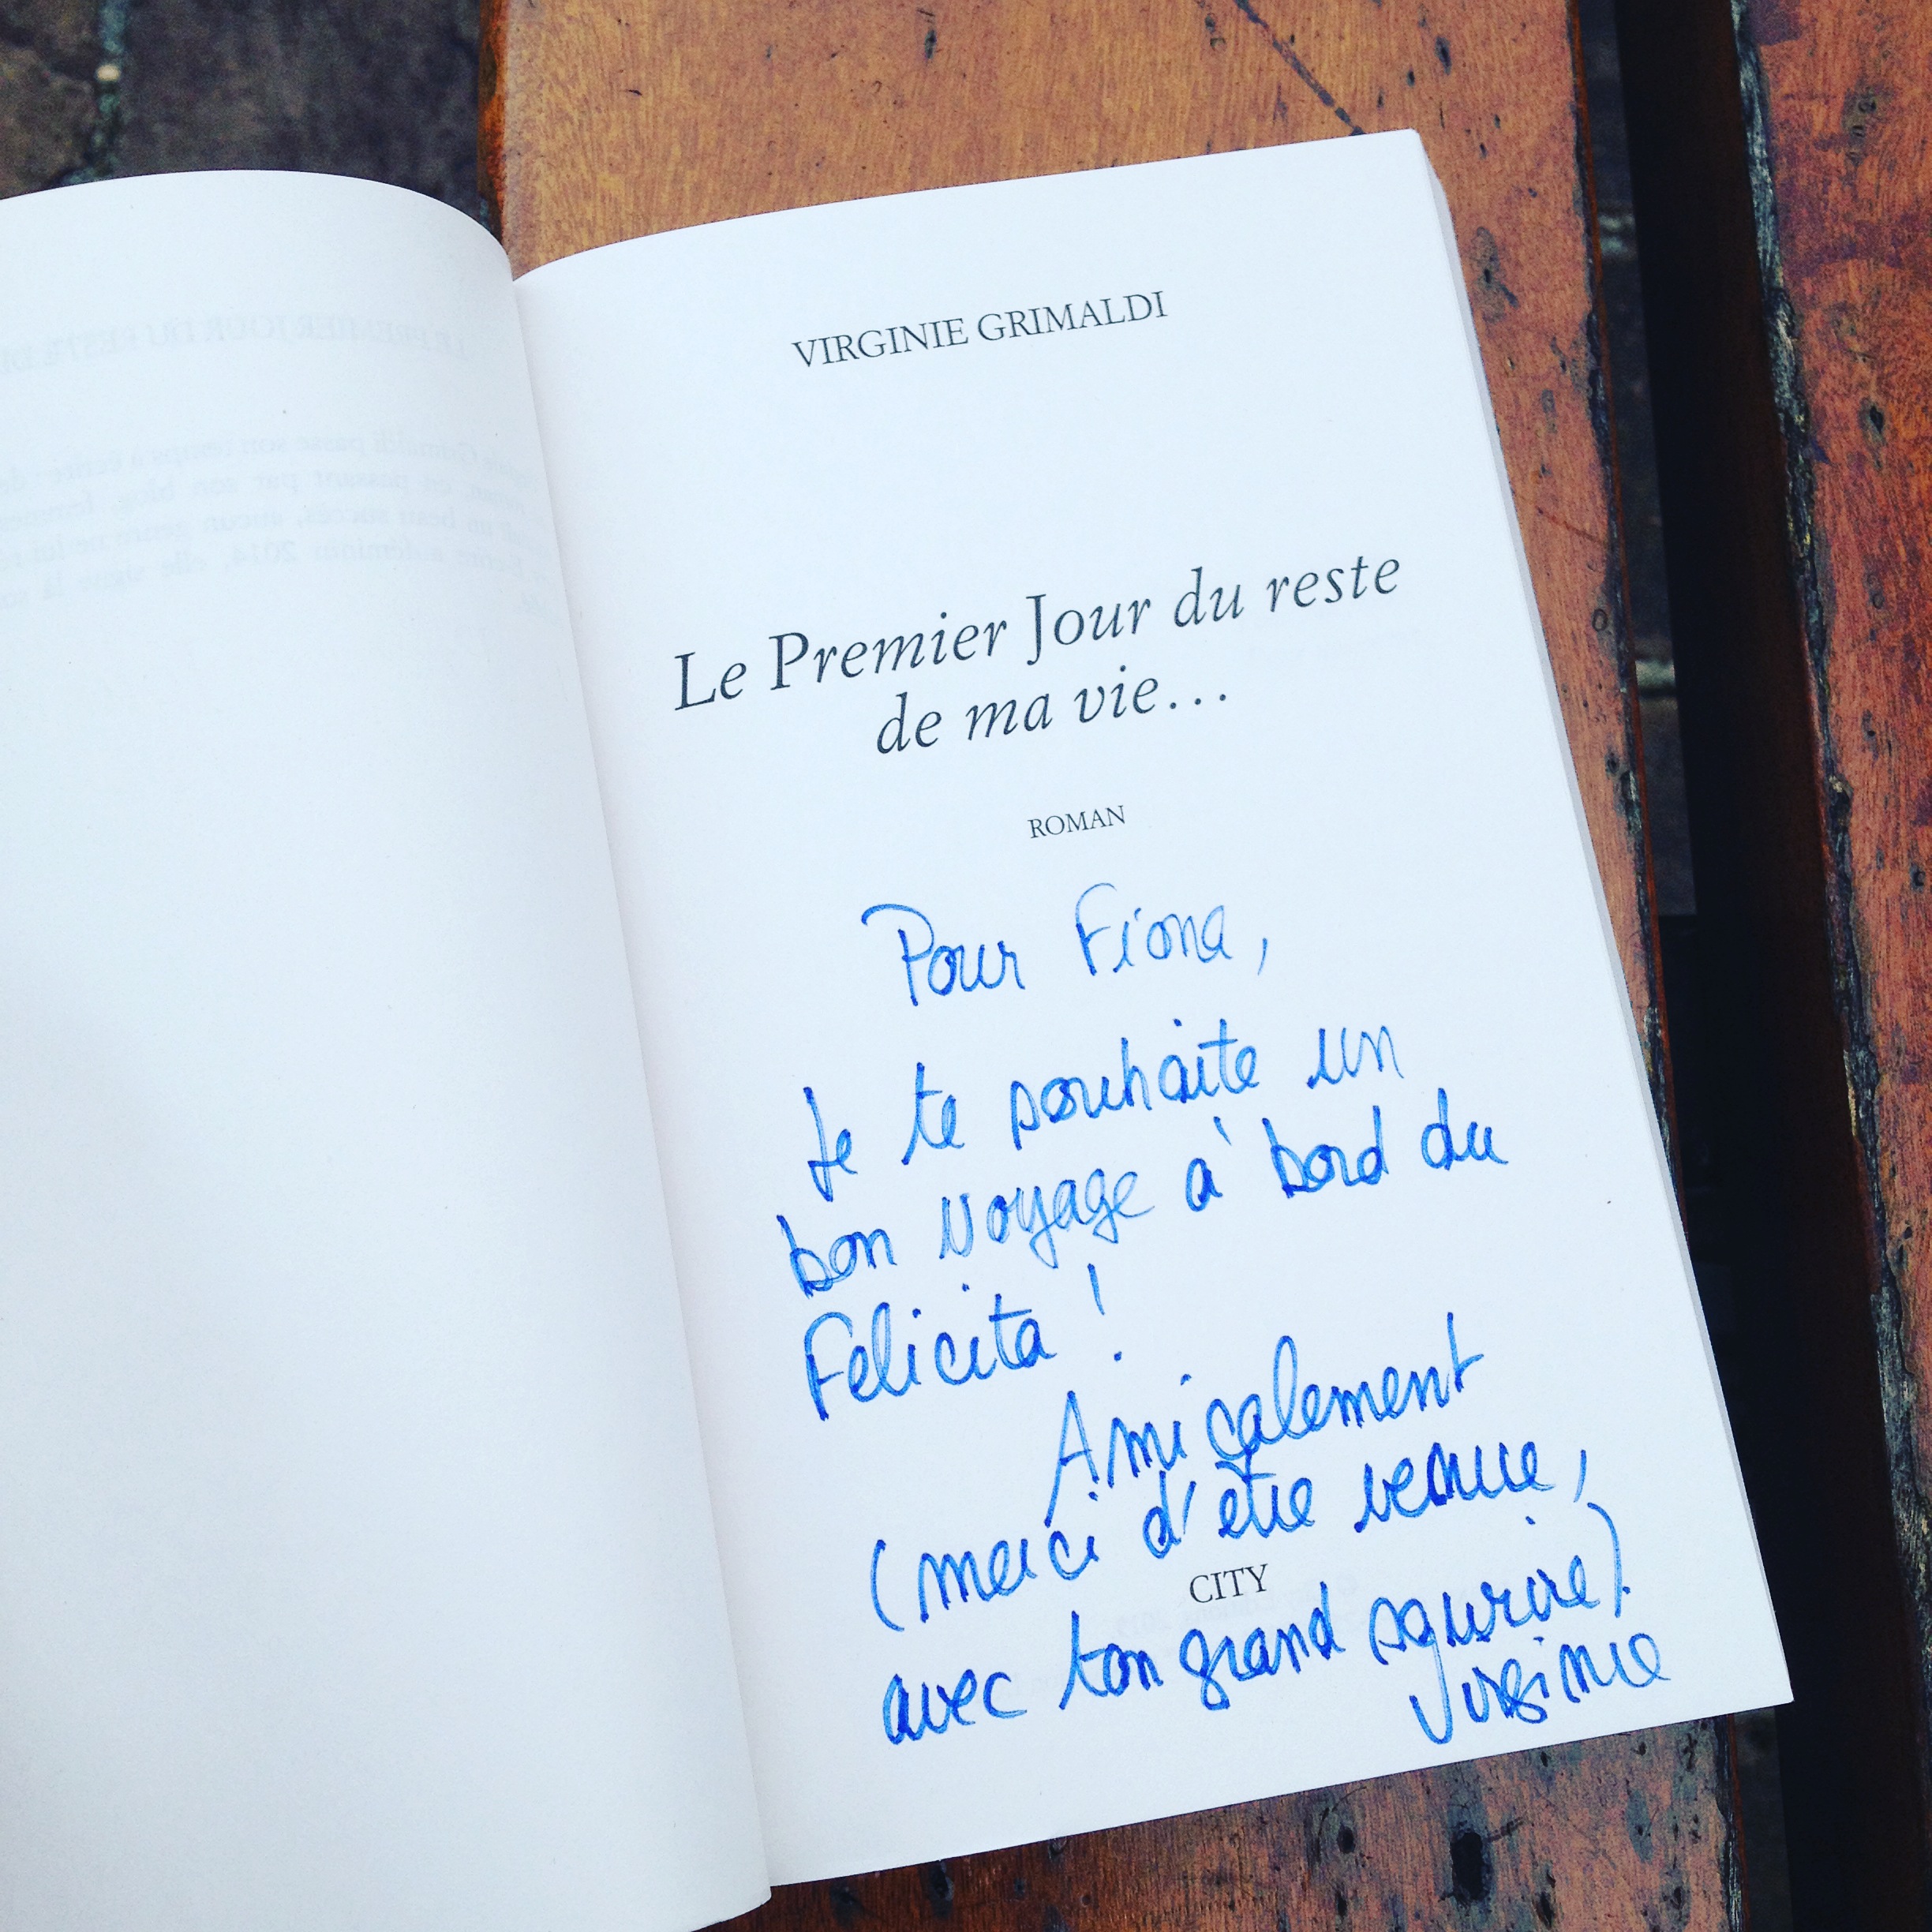 VIRGINIE GRIMALDI
Le Premier Jour du reste
de ma vie...
ROMAN
Pour Fiona,
Je te souhaite un
bon voyage à bord du
Felicita !
Amicalement
(merci d'être venue,
CITY
avec ton grand sourire)
Virginie